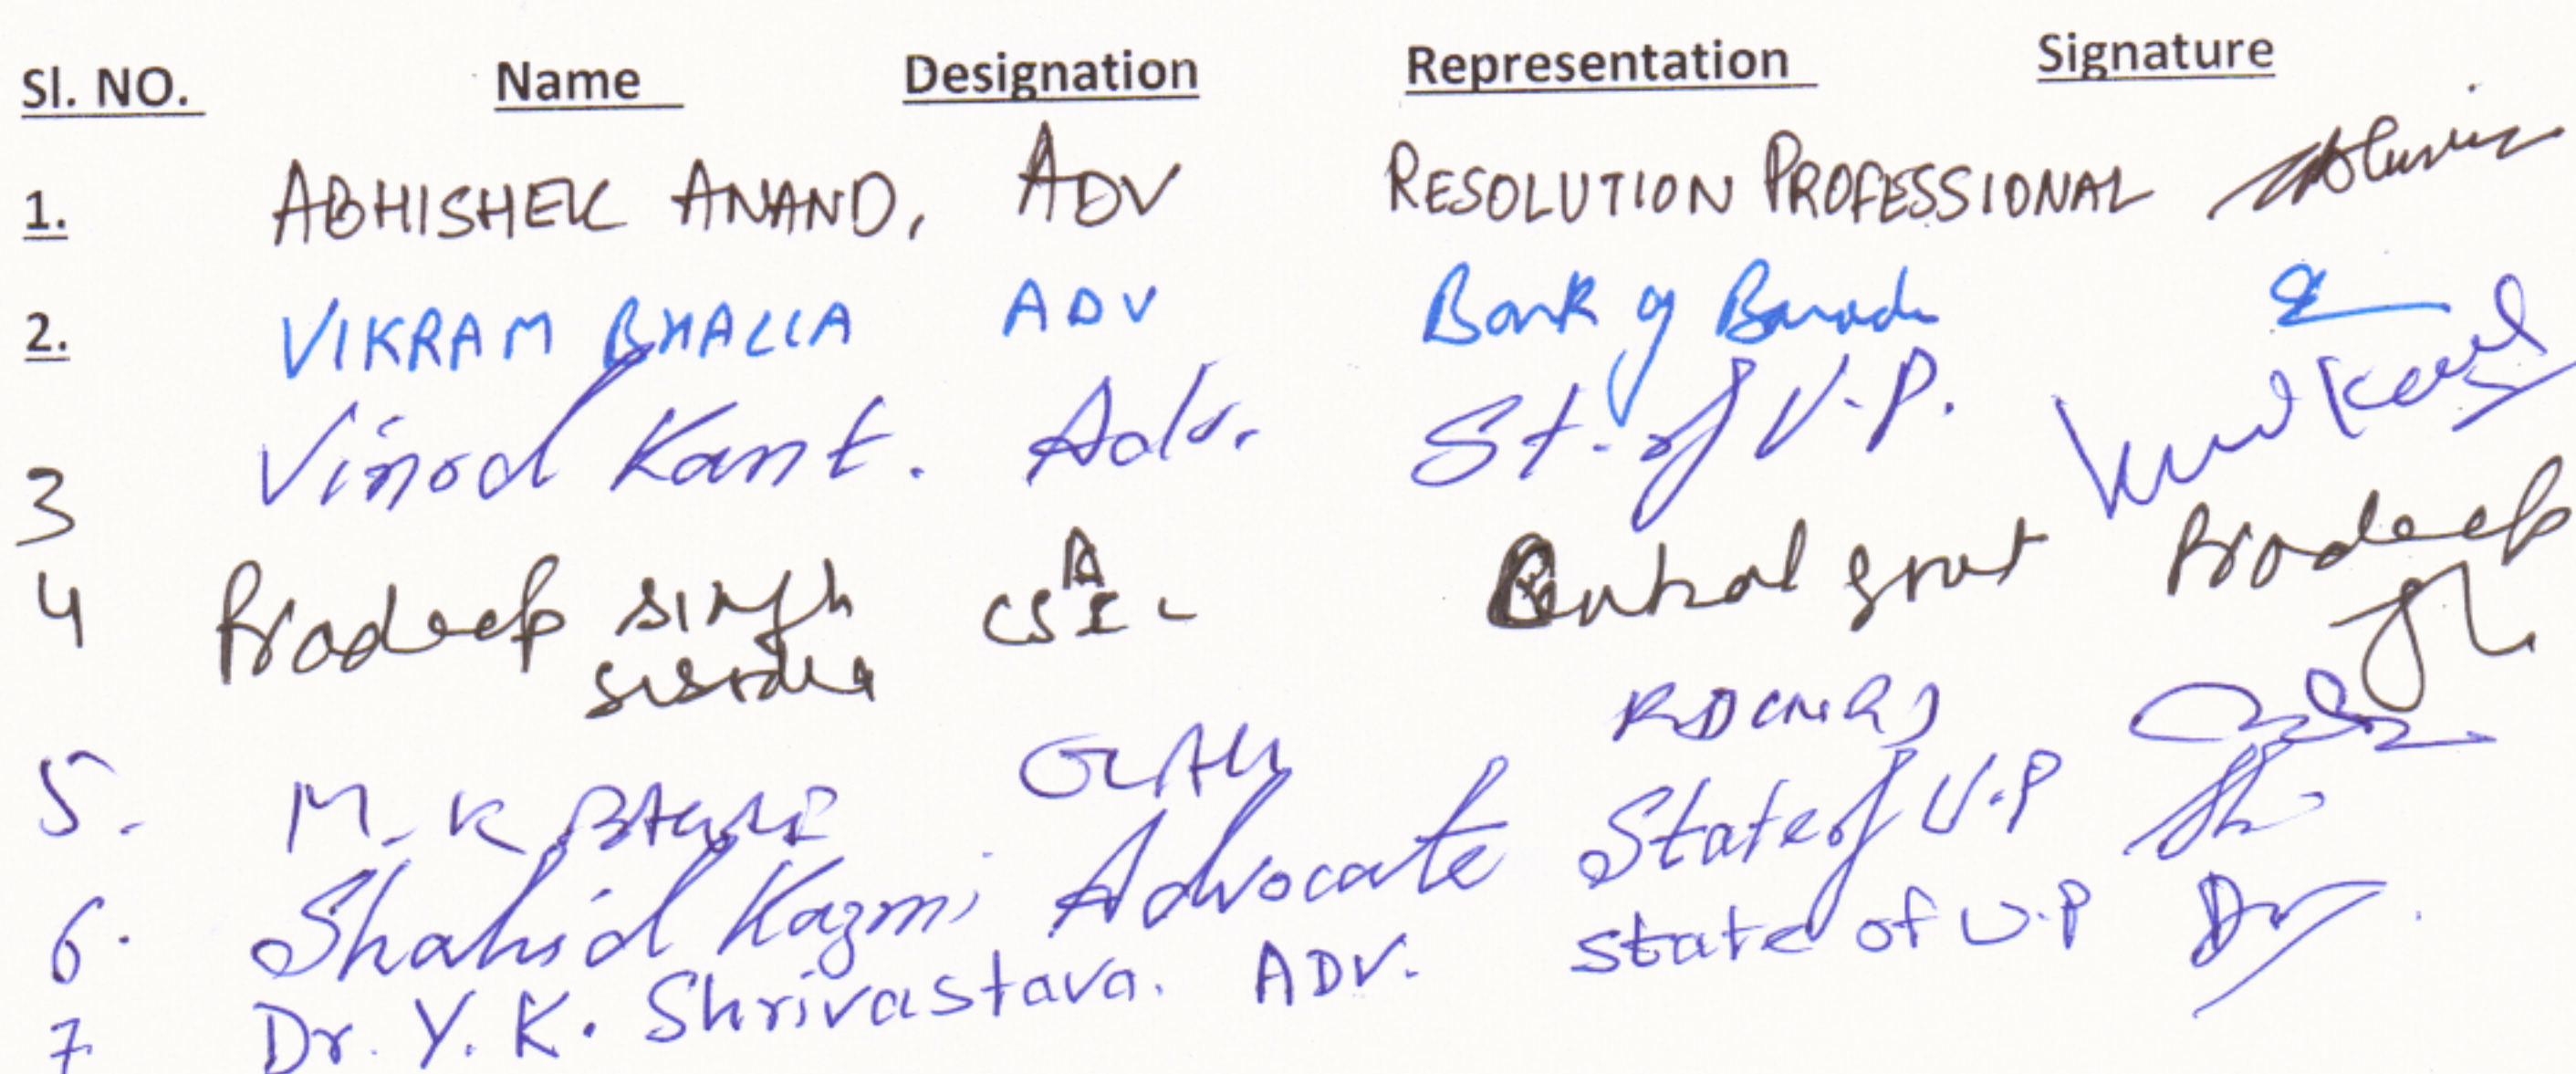 Sl. NO. Name Designation Representation Signature
1. ABHISHEK ANAND, ADV RESOLUTION PROFESSIONAL
2. VIKRAM BHALLA ADV Bank of Baroda
3 Vinod Kant. Adv. St. of U.P.
4 Pradeep singh CSC Central govt Pradeep
sisodia
5. M. K
6. Shahid Kazmi Advocate State of U.P
7 Dr. Y. K. Shrivastava. ADV. State of U.P